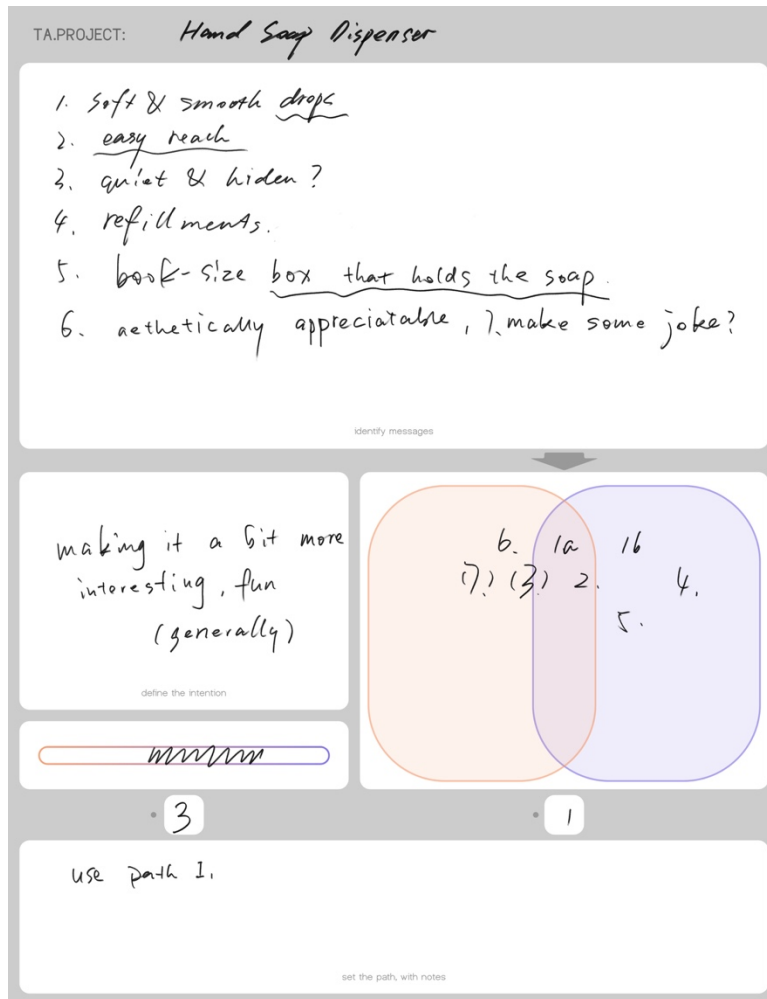 TA.PROJECT: Hand Soap Dispenser
1. soft & smooth drops
2. easy reach
3. quiet & hiden?
4. refillments.
5. book-size box that holds the soap.
6. aethetically appreciatable, 7. make some joke?
identify messages
making it a bit more
interesting, fun
(generally)
define the intention
6. 1a 1b
(7.) (3.) 2. 4.
5.
3
1
use path 1.
set the path, with notes